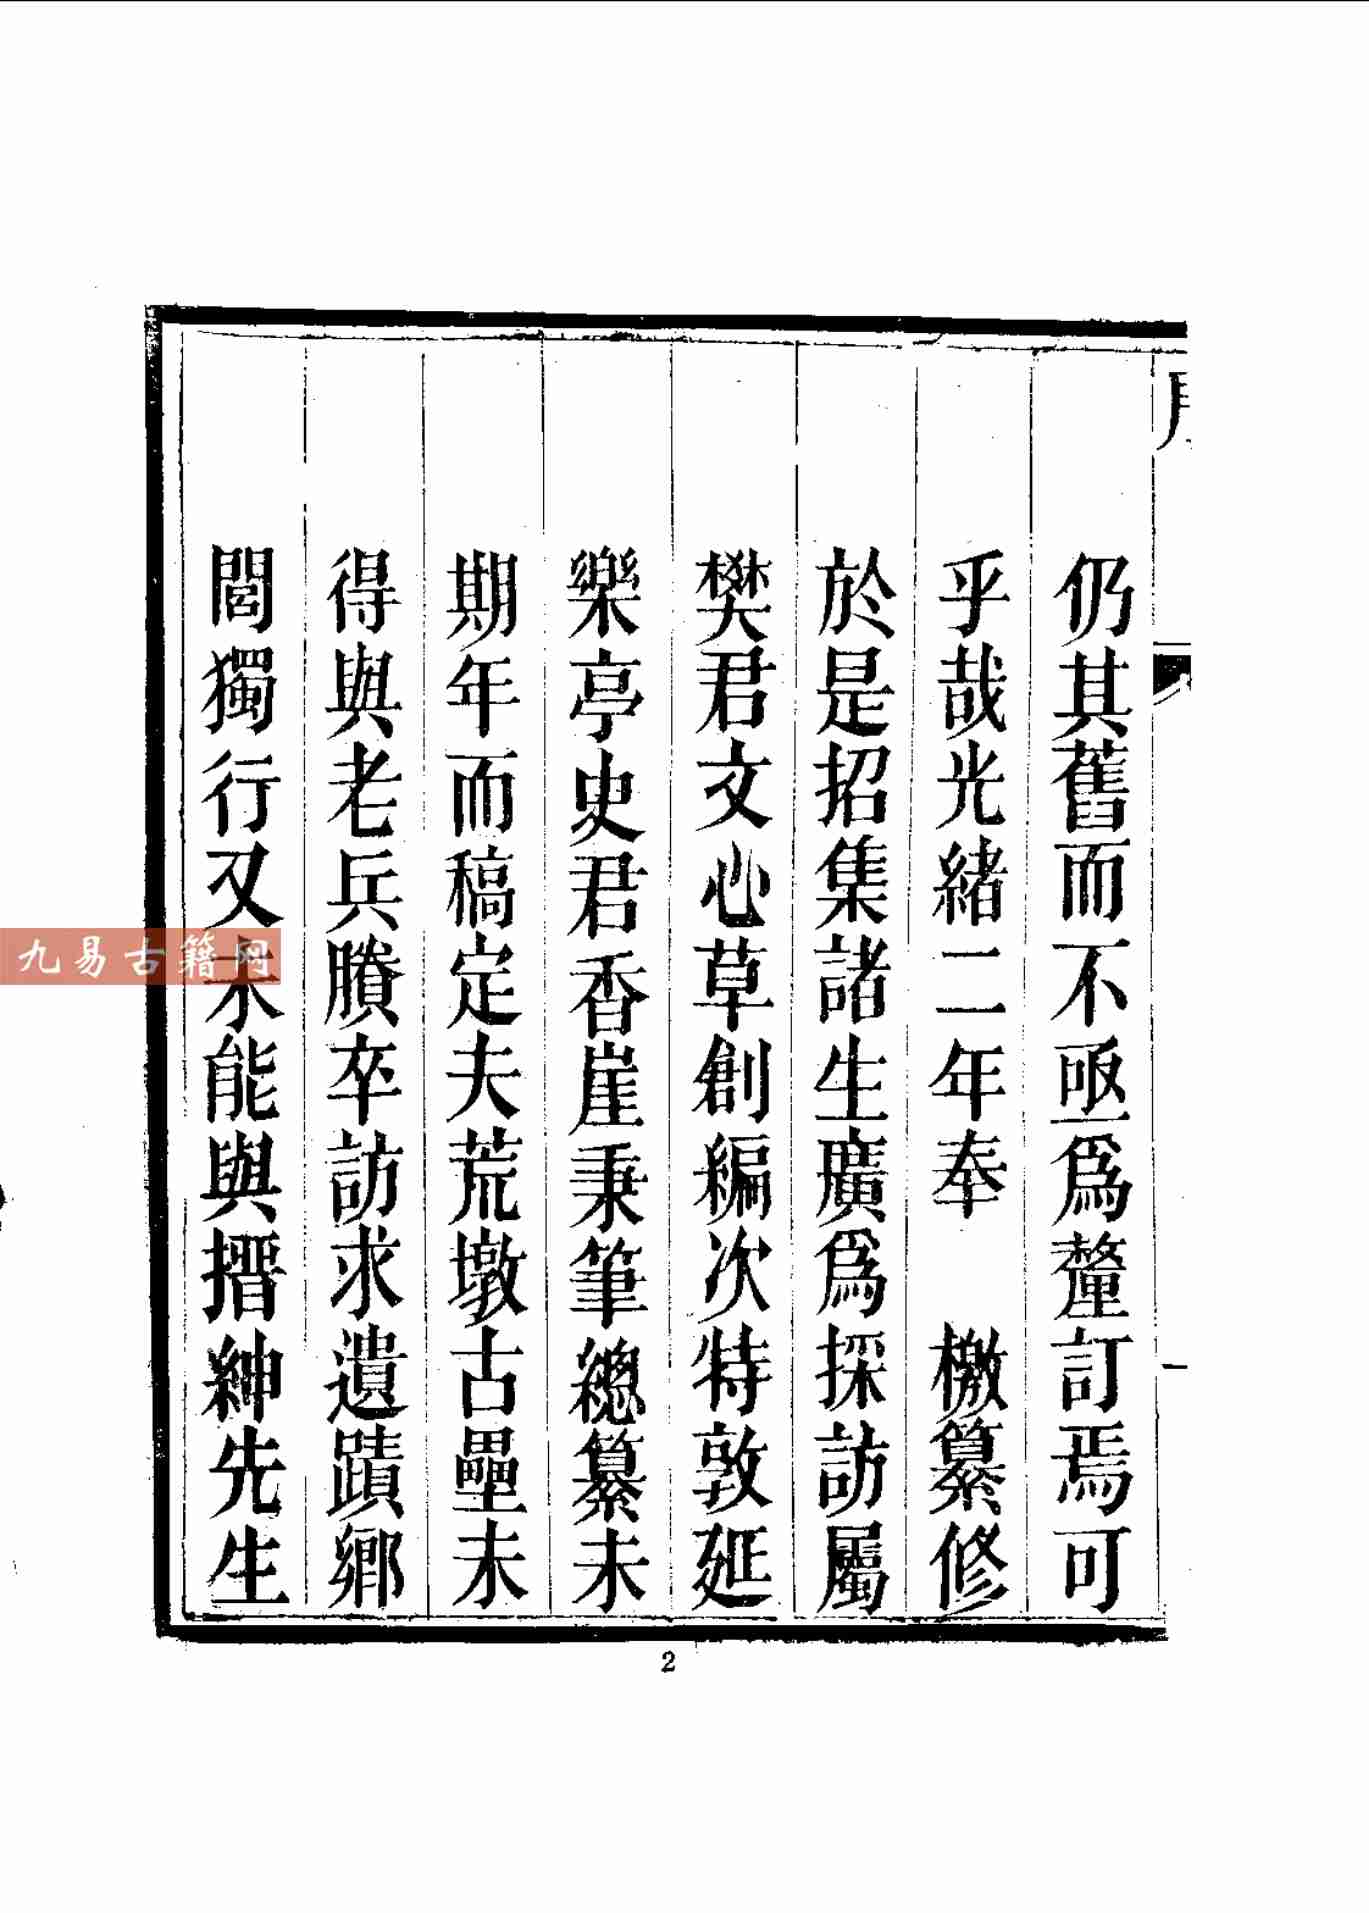 仍其舊而不亟爲釐訂焉可
乎哉光緒二年奉　檄纂修
於是招集諸生廣爲採訪屬
樊君文心草創編次特敦延
樂亭史君香崖秉筆總纂未
期年而稿定夫荒墩古壘未
得與老兵賸卒訪求遺蹟鄉
閭獨行又未能與搢紳先生
2
九易古籍网